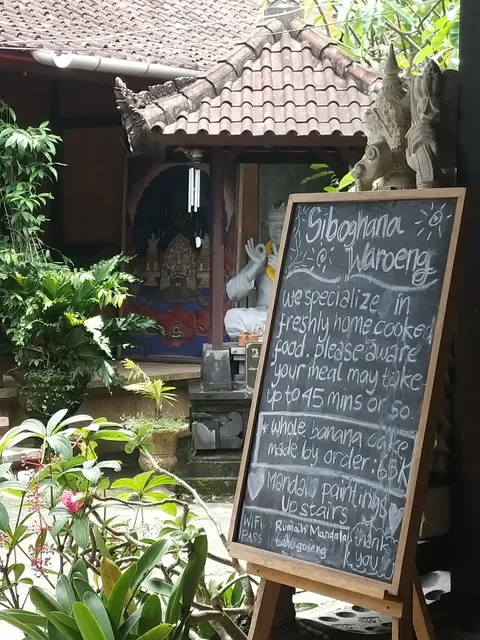 Siboghana
Waroeng
we specialize in
freshly home cooked
food. please aware
your meal may take
up to 45 mins or so.
* whole banana cake
made by order: 65K
Mandala paintings
upstairs
WIFI : Rumah Mandala
PASS tahugoreng
thank
you